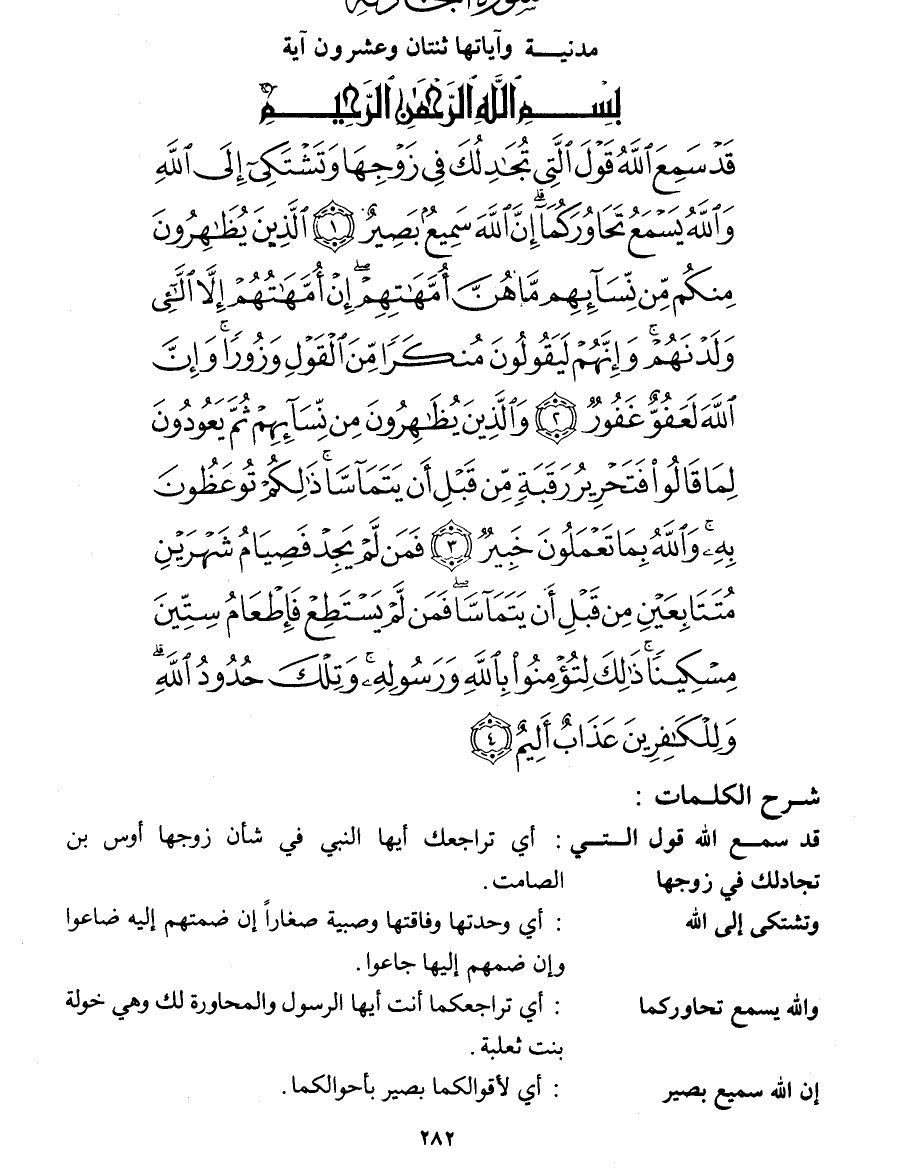 سورة المجادلة
مدنيـــة وآياتها ثنتان وعشرون آية
بِسْمِ ٱللَّهِ ٱلرَّحْمَٰنِ ٱلرَّحِيمِ
قَدْ سَمِعَ ٱللَّهُ قَوْلَ ٱلَّتِى تُجَٰدِلُكَ فِى زَوْجِهَا وَتَشْتَكِىٓ إِلَى ٱللَّهِ
وَٱللَّهُ يَسْمَعُ تَحَاوُرَكُمَآ ۚ إِنَّ ٱللَّهَ سَمِيعٌۢ بَصِيرٌ ١ ٱلَّذِينَ يُظَٰهِرُونَ
مِنكُم مِّن نِّسَآئِهِم مَّا هُنَّ أُمَّهَٰتِهِمْ ۖ إِنْ أُمَّهَٰتُهُمْ إِلَّا ٱلَّٰٓـِٔى
وَلَدْنَهُمْ ۚ وَإِنَّهُمْ لَيَقُولُونَ مُنكَرًا مِّنَ ٱلْقَوْلِ وَزُورًا ۚ وَإِنَّ
ٱللَّهَ لَعَفُوٌّ غَفُورٌ ٢ وَٱلَّذِينَ يُظَٰهِرُونَ مِن نِّسَآئِهِمْ ثُمَّ يَعُودُونَ
لِمَا قَالُوا۟ فَتَحْرِيرُ رَقَبَةٍ مِّن قَبْلِ أَن يَتَمَآسَّا ۚ ذَٰلِكُمْ تُوعَظُونَ
بِهِۦ ۚ وَٱللَّهُ بِمَا تَعْمَلُونَ خَبِيرٌ ٣ فَمَن لَّمْ يَجِدْ فَصِيَامُ شَهْرَيْنِ
مُتَتَابِعَيْنِ مِن قَبْلِ أَن يَتَمَآسَّا ۖ فَمَن لَّمْ يَسْتَطِعْ فَإِطْعَامُ سِتِّينَ
مِسْكِينًا ۚ ذَٰلِكَ لِتُؤْمِنُوا۟ بِٱللَّهِ وَرَسُولِهِۦ ۚ وَتِلْكَ حُدُودُ ٱللَّهِ ۗ
وَلِلْكَٰفِرِينَ عَذَابٌ أَلِيمٌ ٤
شـرح الكلـمات :
قد سمـــع الله قول الـــتـــي : أي تراجعك أيها النبي في شأن زوجها أوس بن
تجادلك في زوجها الصامت.
وتشتكى إلى الله : أي وحدتها وفاقتها وصبية صغاراً إن ضمتهم إليه ضاعوا
وإن ضمهم إليها جاعوا.
والله يسمع تحاوركما : أي تراجعكما أنت أيها الرسول والمحاورة لك وهي خولة
بنت ثعلبة.
إن الله سميع بصير : أي لأقوالكما بصير بأحوالكما.
٢٨٢